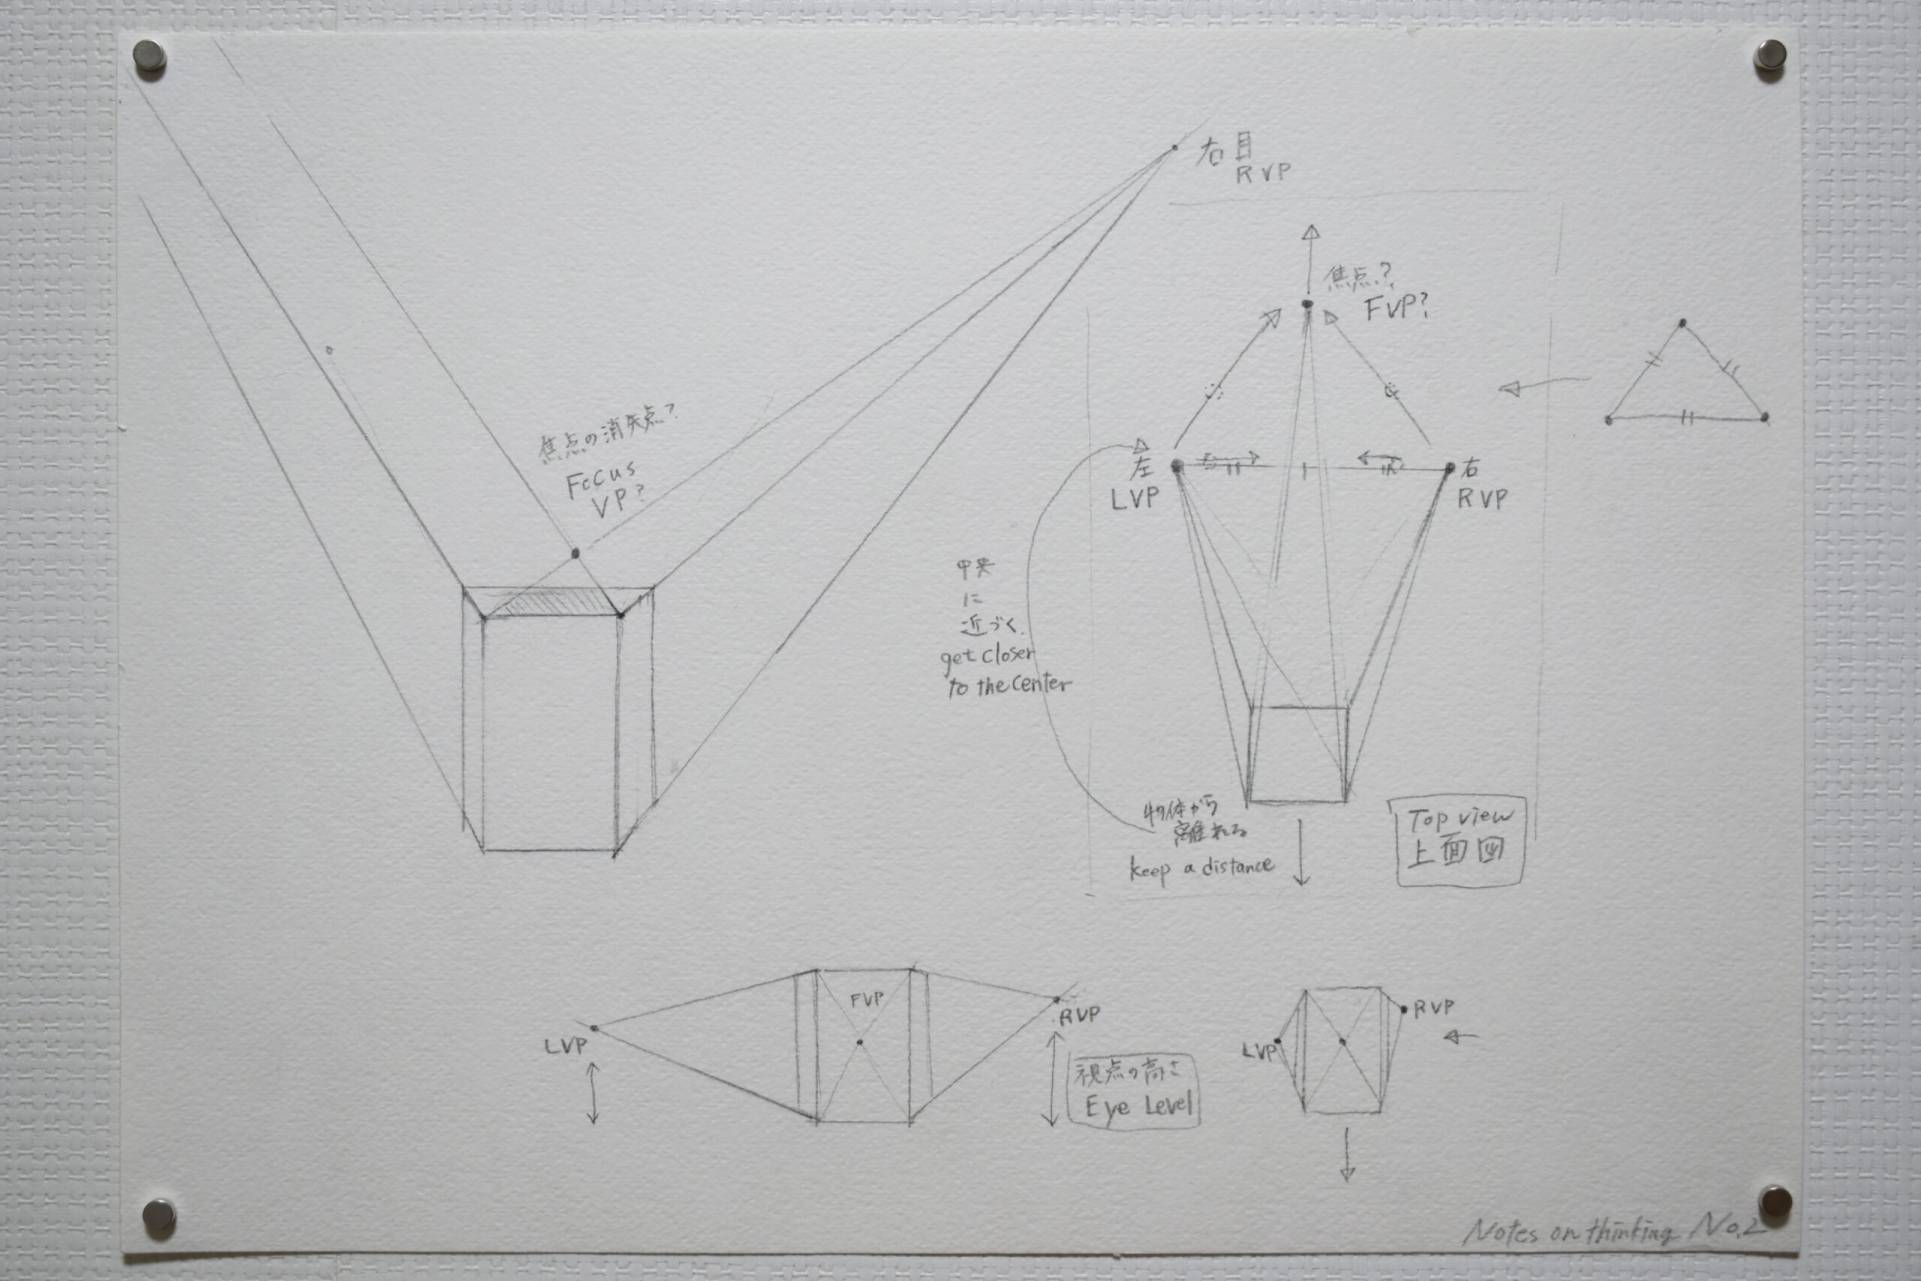 右目
RVP
焦点の消失点?
Focus
VP?
焦点?
FVP?
左
LVP
右
RVP
中央
に
近づく
get closer
to the center
物体から
離れる
keep a distance
Top view
上面図
LVP
FVP
RVP
視点の高さ
Eye Level
LVP
RVP
Notes on thinking No.2